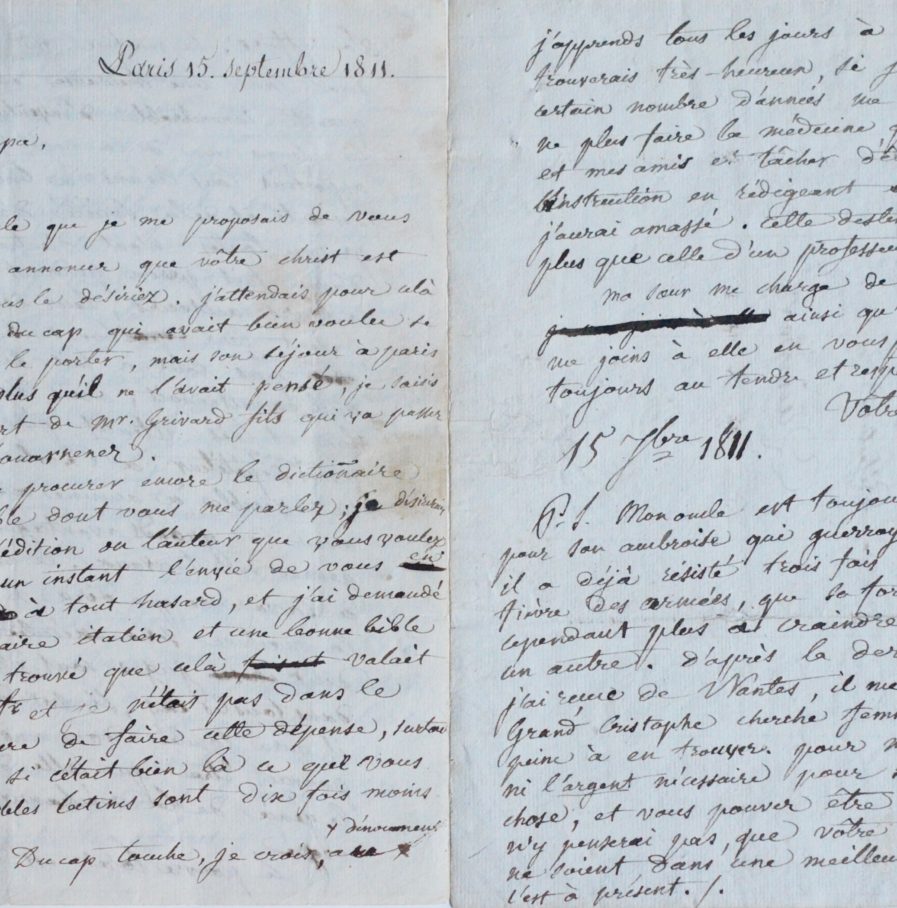 Paris 15. septembre 1811.
pa,
le que je me proposais de vous
annoncer que vôtre christ est
us le désiriez. j'attendais pour celà
Ducap qui avait bien voulu se
le porter, mais son séjour à paris
plus qu'il ne l'avait pensé, je saisis
rt de Mr. Grivard fils qui va passer
ouarnenez.
procurer encore le dictionnaire
ble dont vous me parlez; je désirerais
l'édition ou l'auteur que vous voulez
un instant l'envie de vous en
à tout hasard, et j'ai demandé
aire italien et une bonne bible
trouvé que celà valait
et je n'étais pas dans le
re de faire cette dépense, surtou
si c'était bien là ce que vous
bles latines sont dix fois moins
x dénouement
Ducap touche, je crois, x
j'apprends tous les jours à
trouverais très-heureux, si j
certain nombre d'années me
ne plus faire la médecine q
et mes amis et tâcher d'ê
l'instruction en rédigeant
j'aurai amassé. Cette destin
plus que celle d'un professeu
ma sœur me charge de
ainsi qu
me joins à elle en vous
toujours au tendre et resp
Votre
15 7bre 1811.
P. S. Mon oncle est toujou
pour son ambroise qui guerroy
il a déjà résisté trois fois
fièvre des armées, que sa for
cependant plus à craindre
un autre. D'après le der
j'ai reçue de Nantes, il me
Grand Cristophe cherche femm
peine à en trouver. pour m
ni l'argent nécessaire pour
chose, et vous pouvez être
n'y penserai pas, que vôtre
ne soient dans une meilleu
c'est à présent ./.